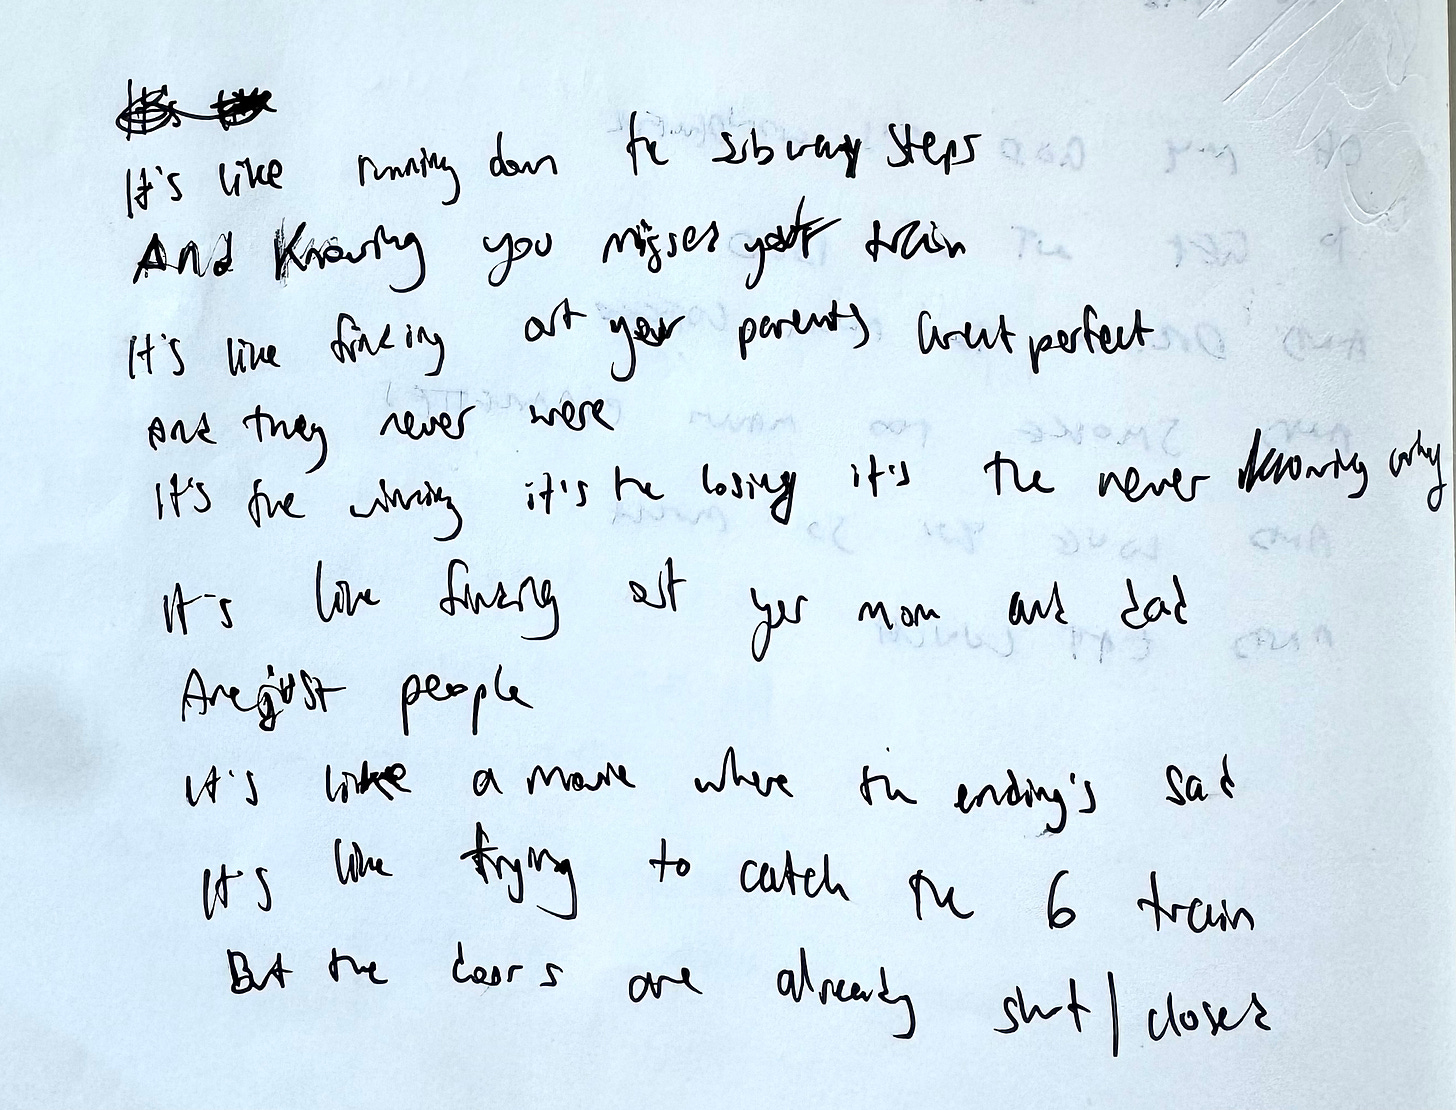 It's like running down the subway steps
And Knowing you missed your train
It's like finding out your parents arent perfect
And they never were
It's the winning it's the losing it's the never knowing why
It's like finding out yer mom and dad
Are just people
It's like a movie where the ending's sad
It's like trying to catch the 6 train
But the doors are already shut / closed